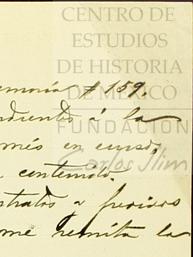 CENTRO DE
ESTUDIOS
DE HISTORIA
DE MÉXICO
FUNDACIÓN
Carlos Slim
emoria # 159.
ndientes á la
més en curso,
contenido.
strados y precisos
me remita la